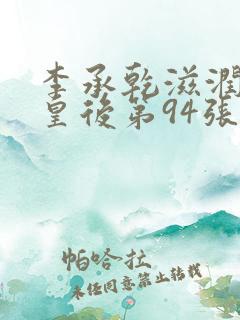 李承乾滋潤
皇後第94張
帕哈杜
未经同意禁止转载